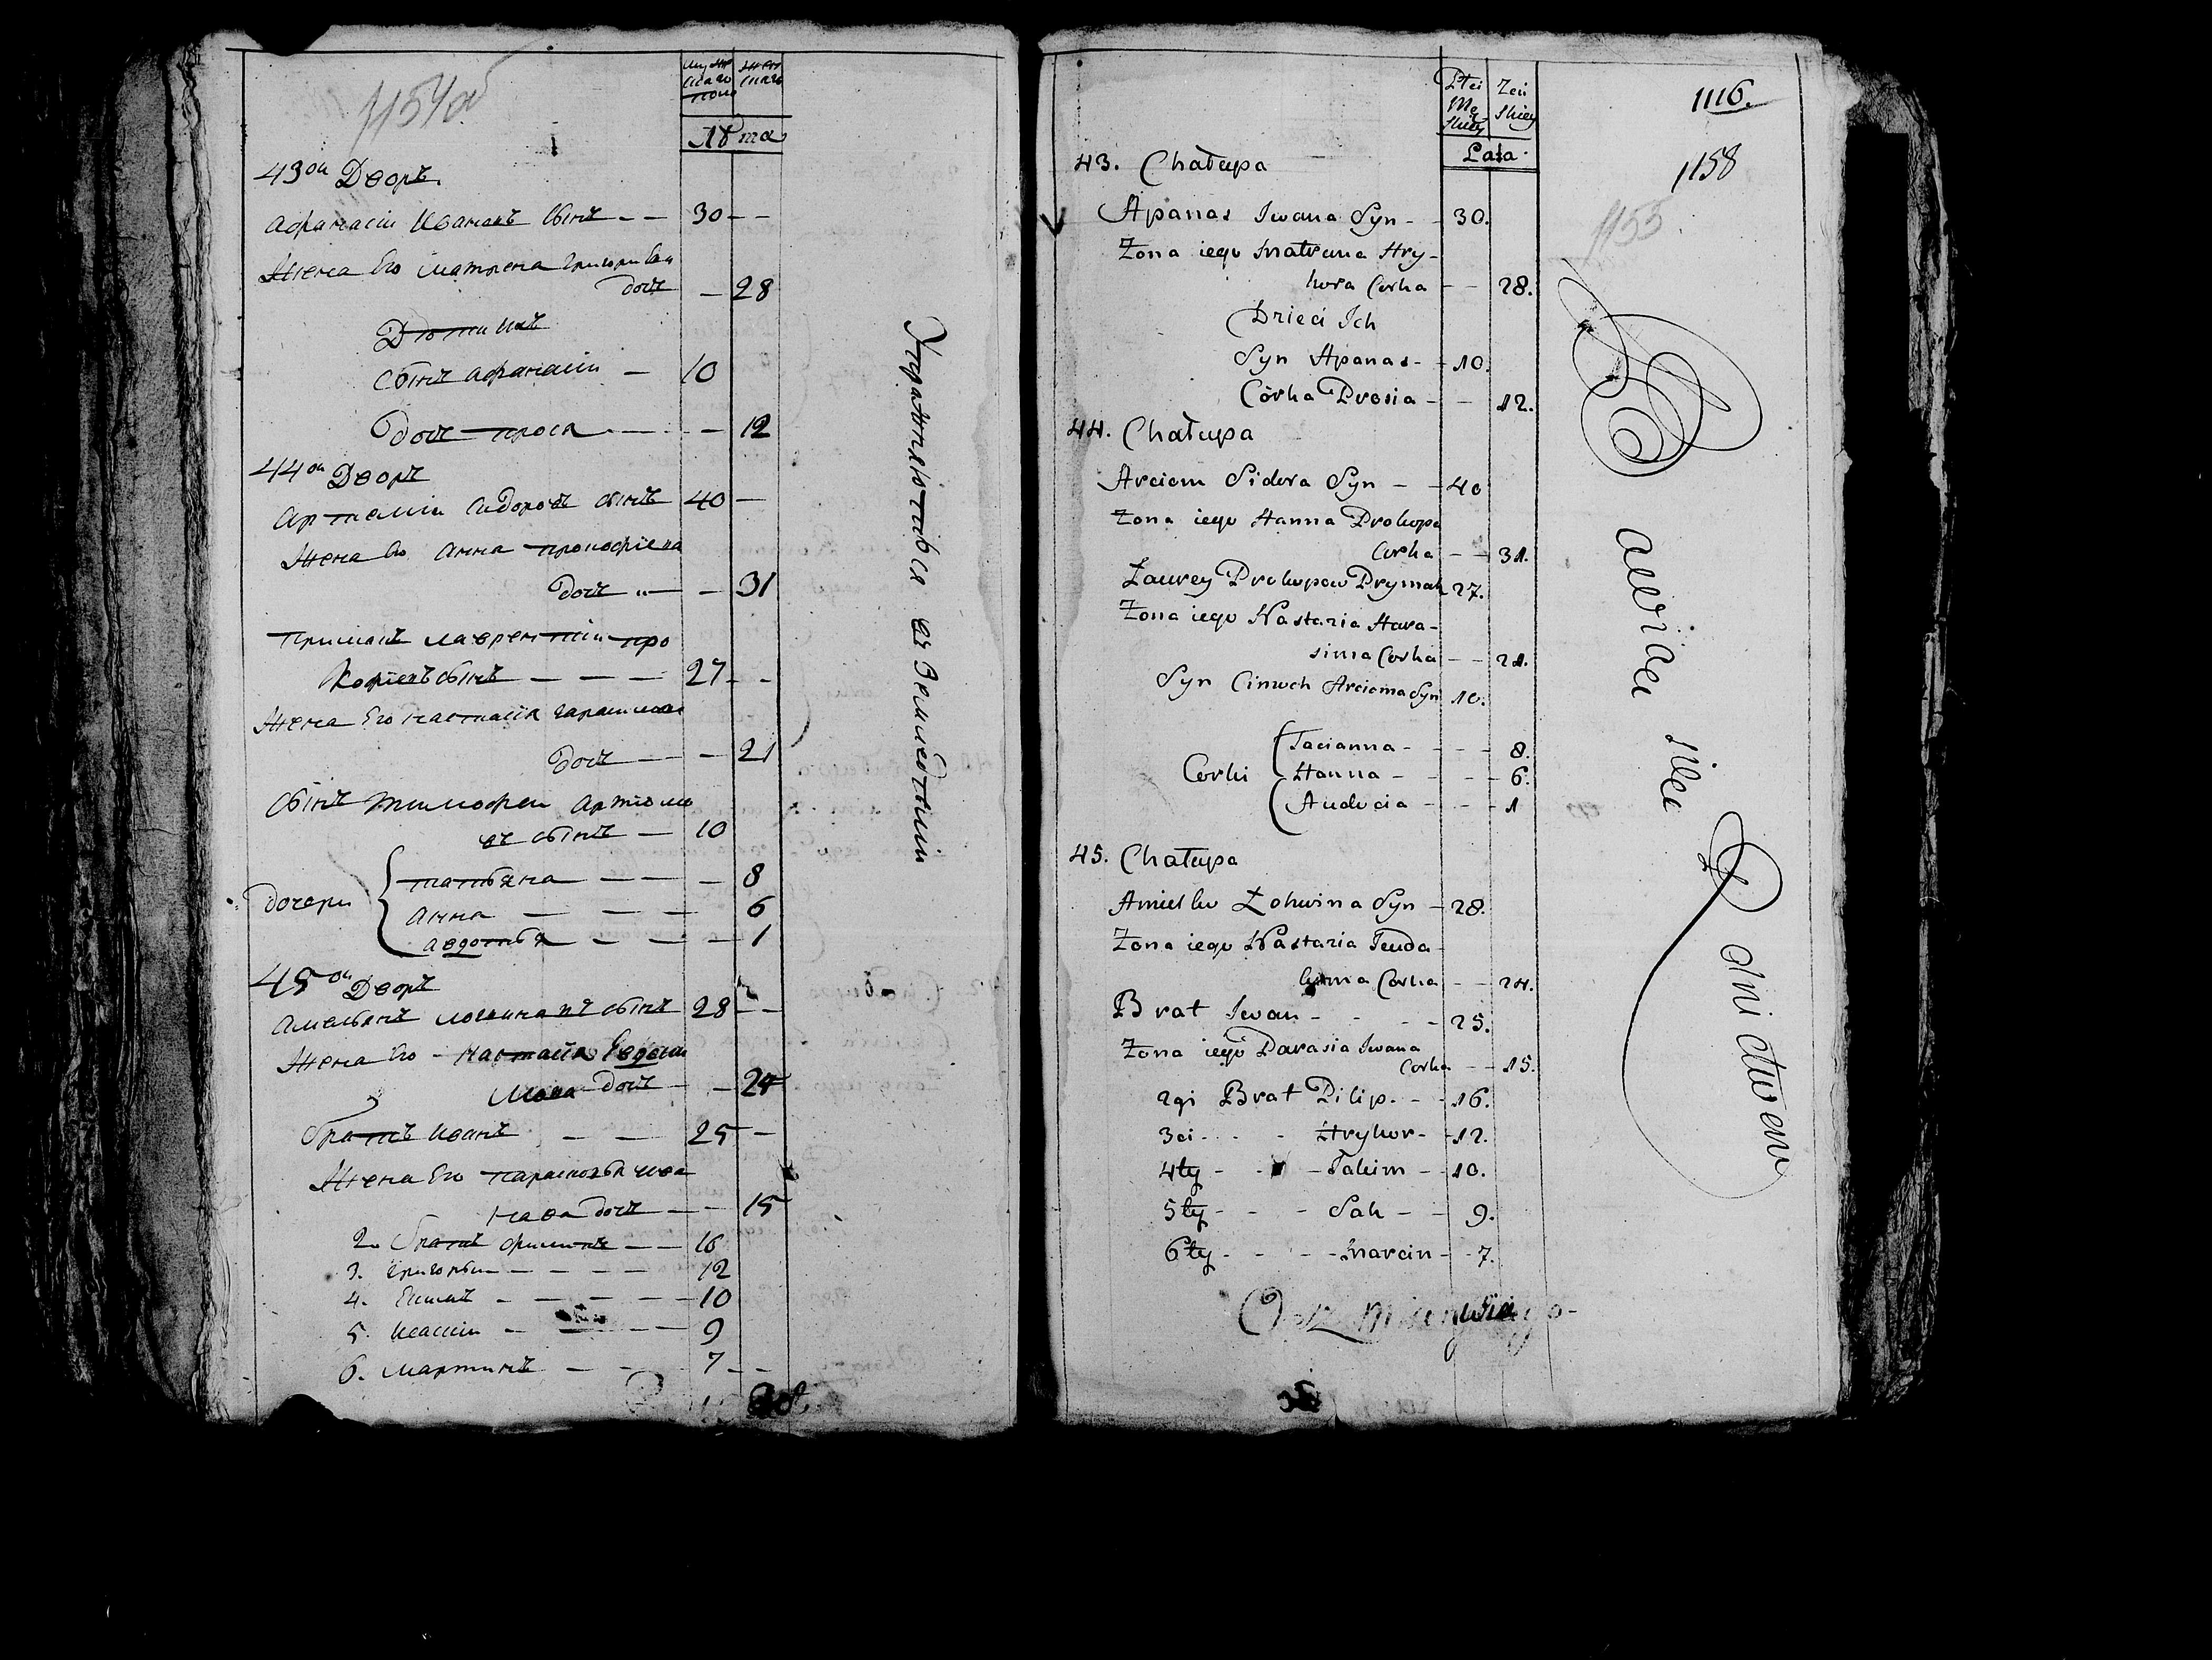 1154об
Мужеска полу
Женска
Лѣта
43ой Дворъ.
Афанасіи Ивановъ сынъ - - 30 - -
Жена Его Матрена Григорьева
дочь - 28
Дѣти ихъ
сынъ Афанасіи - 10
дочь Прося - - - 12
44ой Дворъ
Артемій Сидоровъ сынъ 40 -
Жена Его Анна Прокофіева
дочь - - 31
Примакъ Лаврентіи Про
кофіевъ сынъ - - - 27 - -
Жена Его Настасія Гарасимова
дочь - - 21
Сынъ Тимофеи Артіомо
въ сынъ - 10
дочери
Татьяна - - - 8
Анна - - - 6
Авдотья - - - - 1
45ой Дворъ
Амельянъ Логвиновъ сынъ 28 - -
Жена Его - Настасія Евдоки
мова дочь - - 24
братъ Иванъ - - 25 -
Жена Его Парасковья Ива
нова дочь - - 15
2. братъ Филипъ - - 16
3. Григорьи - - - - 12
4. Екимъ - - - - 10
5. Исакіи - - - 9
6. Мартинъ - - - 7 - -
Упражняютъся въ Земледѣліи
Płci Męskiey
Żeńskiey
Lata.
1116.
1158
1155
43. Chałupa
Apanas Iwana Syn - - 30.
Żona iego Matruna Hry-
hora Corka - - 28.
Dzieci Ich
Syn Apanas - - 10.
Córka Prosia - - 12.
44. Chałupa
Arciom Sidora Syn - - 40
Żona iego Hanna Prokopa
Corka - - 31.
Ławrey Prokopow Prymak 27.
Żona iego Nastazia Hara-
sima Corka - - 21.
Syn Cimoch Arcioma Syn 10.
Corki
Tacianna - - - - 8.
Hanna - - - - 6.
Audocia - - - 1
45. Chałupa
Amielko Łohwina Syn - 28.
Żona iego Nastazia Jeudo-
kima Corka - - 24.
Brat Iwan - - - - 25.
Żona iego Parasia Iwana
Corka - - 15.
2gi Brat Pilip. - - 16.
3ci - - - Hryhor - - 12.
4ty - - - Jakim - - 10.
5ty - - - Sak - - 9.
6ty - - - - Marcin - - 7.
Bawiący się Rolnictwem